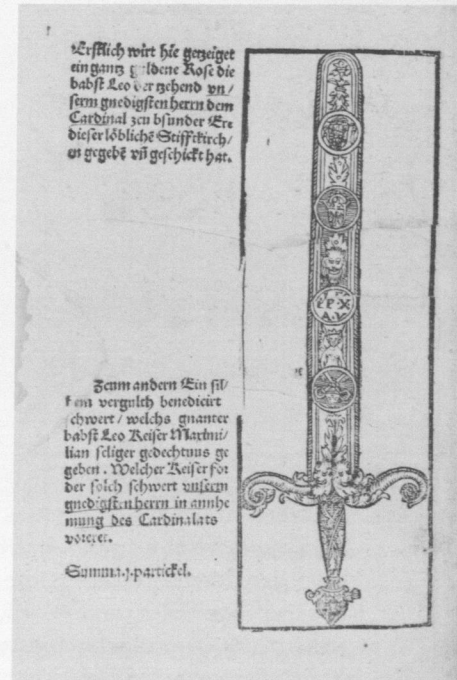 Erstlich wirt hie getzeiget
ein gantz guldene Rose die
babst Leo der tzehend vn/
serm gnedigsten herrn dem
Cardinal zcu bsunder Ere
dieser löblichē Stifftkirch/
en gegebē vñ geschickt hat.
LP·X
A·V
Zcum andern Ein sil/
bern vergulth benedicirt
schwert / welchs gnanter
babst Leo Keiser Maximi/
lian seliger gedechtnus ge
geben. Welcher Keiser for
der solch schwert vnserm
gnedigsten herrn in annhe
mung des Cardinalats
voreret.
Summa .j. partickel.